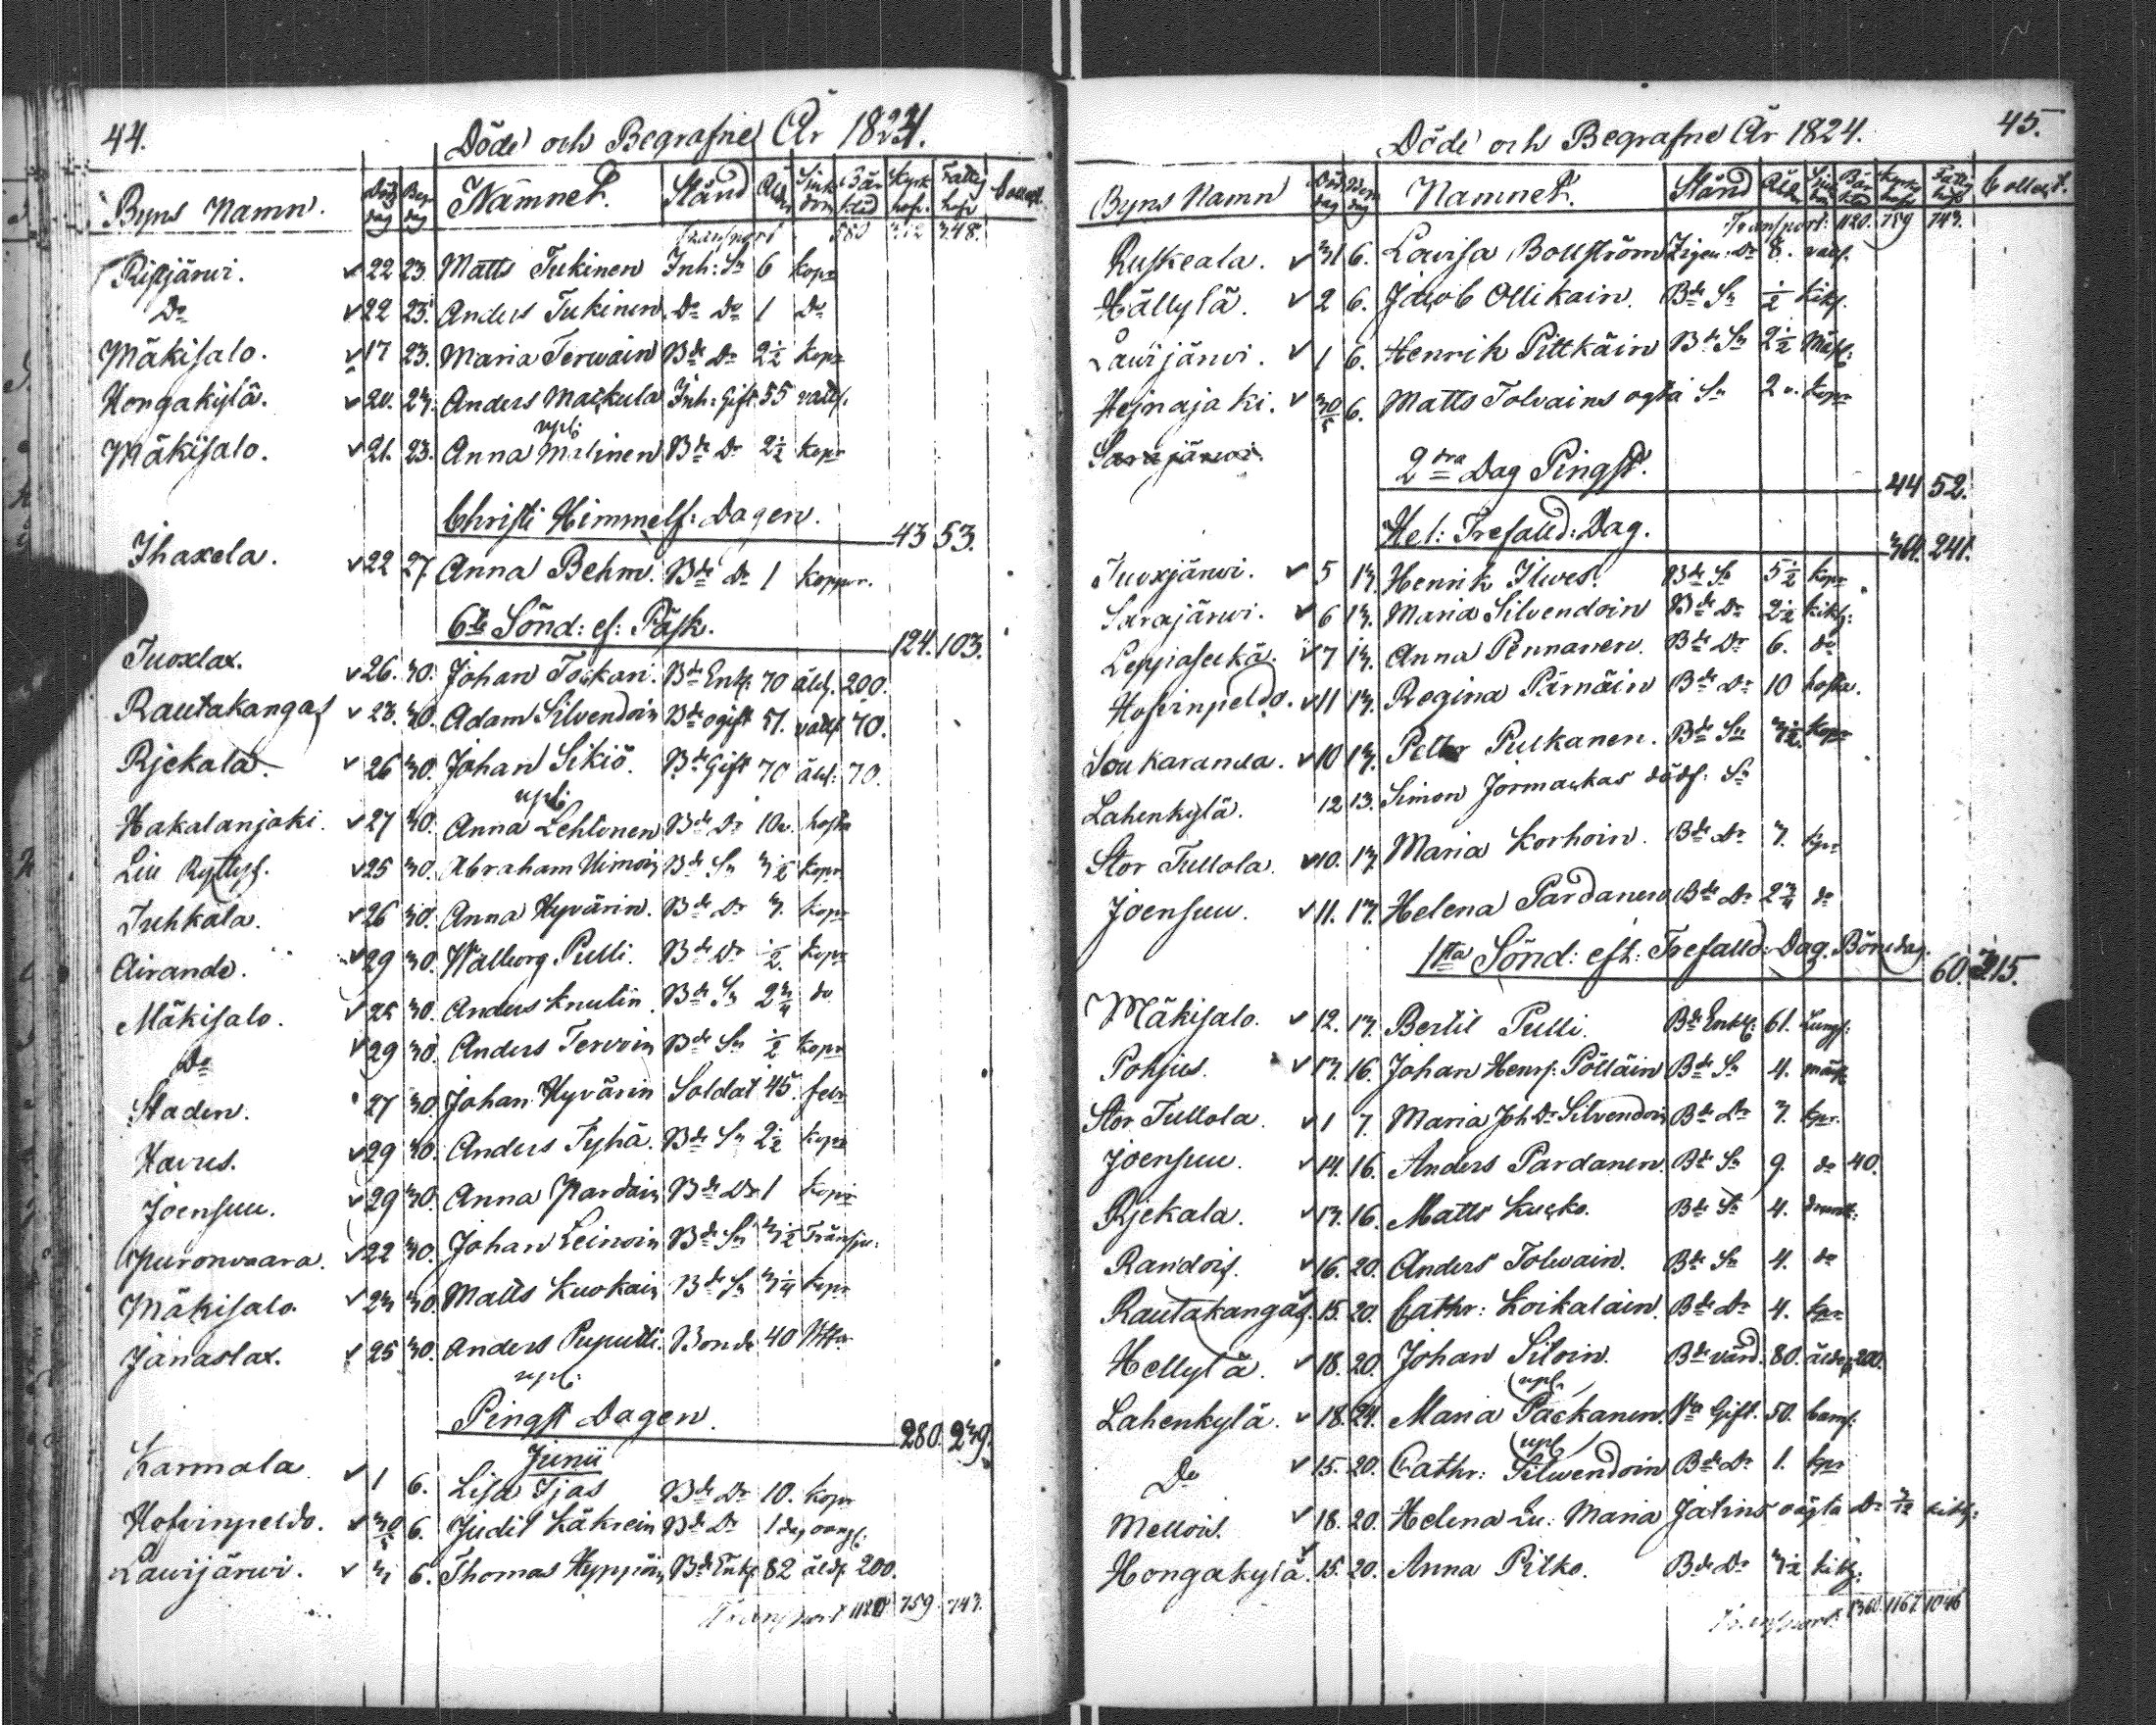 44.
Döde och Begrafne År 1824.
Byns Namn. Död dag Begr dag Namnet. Stånd Åld Sjuk dom Bår kläd Kyrk hofv. Fattig hofv Collect.
Transport 580 312 348.
Ristjärwi. 22 23. Matts Tukinen Inh: Sn 6 kopr
Do 22 23. Anders Tukinen Do Do 1 Do
Mäkisalo. 17 23. Maria Terwain Bde Dr 2½ kopr
Hongakylä. 20. 23. Anders Mackula Inh: Gift 55 vatts.
upl:
Mäkisalo. 21. 23. Anna Malinen Bde Dr 2½ kopr
Christi Himmelsf: Dagen. 43 53.
Ihaxela. 22 27. Anna Behm. Bde Dr 1 koppr.
6te Sönd: ef: Påsk. 124. 103.
Tuoxlax. 26. 30. Johan Toskan. Bde Enkl. 70 åld. 200.
Rautakangas 28. 30. Adam Silvendoin Bde ogift 51. vatts 70.
Rjekala. 26 30. Johan Sikiö. Bde Gift 70 åld: 70.
upl:
Hakalanjoki. 27 30. Anna Lehtonen Bde Dr 10v. hosta
Liu Ryttys. 25 30. Abraham Uimoin Bde Sn 3½ kopr
Tuhkala. 26 30. Anna Hyvärin. Bde Dr 3. kopr
Airando. 29 30. Walborg Pulli. Bde Dr ½. kopr
Mäkisalo. 25 30. Anders Knutin. Bde Sn 2¾ do
Do 29 30. Anders Tervoin Bde Sn ½ kopr
Staden. 27 30. Johan Hyvärin Soldat 45. febr
Havus. 29 30. Anders Tyhä. Bde Sn 2½ kopr
Joensuu. 29 30. Anna Pardain Bde Dr 1 kopr
Puronvaara. 22 30. Johan Leinoin Bde Sn 3½ Tränsju:
Mäkisalo 23 30. Matts Kuokain Bde Sn 3¼ kopr
Janaslax. 25 30. Anders Puputti. Bonde 40
upl:
Pingst Dagen. 280. 239.
Junii
Karmala 1 6. Lisa Ijas Bde Dr 10. kopr
Hofvinpeldo. 30/5 6. Judit Käkrein Bde Dr 1 dag
Lavijärwi. 3 6. Thomas Hyppöin Bde Enkl 82 åld. 200.
Transport 1120 759. 743.
45.
Döde och Begrafne År 1824.
Byns Namn Död dag Begr dag Namnet. Stånd Åld Sjuk dom Bår kläd Kyrko hofv Fattig hofv Collect.
Transport: 1120. 759 743.
Ruskeala. 31 6. Lovisa Bollström Zigen: Dr 8. vatts.
Hällylä. 2 6. Jacob Ollikain. Bde Sn ½ kikh.
Lavijärwi. 1 6. Henrik Pittkäin Bde Sn 2½ Mäsl:
Hejnajoki. 30/5 6. Matts Tolvains ogta Sn 2v. kopr
Sarajärwi.
2dra Dag Pingst. 44 52.
Hel: Trefalld: Dag. 364. 241.
Tuoxjärwi. 5 13. Henrik Ilwes. Bde Sn 5½ kopr
Sarajärwi. 6 13. Maria Silvendoin Bde Dr 2½ kikh:
Leppäselkä. 7 13. Anna Pennanen. Bde Dr 6. do
Hofvinpeldo. 11 13. Regina Pärnäin Bde Dr 10 hosta.
Soukaranda. 10 13. Petter Pulkanen. Bde Sn 3½. kopr
Lahenkylä. 12 13. Simon Jormackas dödf: Sn
Stor Tullola. 10. 13. Maria Korhoin. Bde Dr 3. kpr
Joensuu. 11. 13. Helena Pardanen Bde Dr 2¾ do
1sta Sönd: eft: Trefalld: Dag. Bönedag. 60. 215.
Mäkisalo. 12. 13. Bertil Pulli. Bde Enkl: 61. Lungs:
Pohjus. 13. 16. Johan Henr: Pölläin Bde Sn 4. mäsl
Stor Tullola. 1 7. Maria Joh: Dr Silvendoin Bde Dr 3. kpr.
Joensuu. 14. 16. Anders Pardanen. Bde Sn 9. do 40.
Rjekala. 13. 16. Matts Kucko. Bde Sn 4.
Randois. 16. 20. Anders Tolwain. Bde Sn 4. do
Rautakangas. 15. 20. Cathr: Koikalain. Bde Dr 4. kpr
Hellylä. 18. 20. Johan Siloin. Bde värd. 80. ålde. 200.
upl:
Lahenkylä. 18. 24. Maria Packanen. Gift. 50.
upl:
Do 15. 20. Cathr: Silwendoin Bde Dr 1. kpr
Mellois. 18. 20. Helena Lu: Maria Jatins oägta Dr 3/12 kikh:
Hongakylä. 15. 20. Anna Pitko. Bde Dr 3½ kikh:
Transport: 1360. 1167. 1046